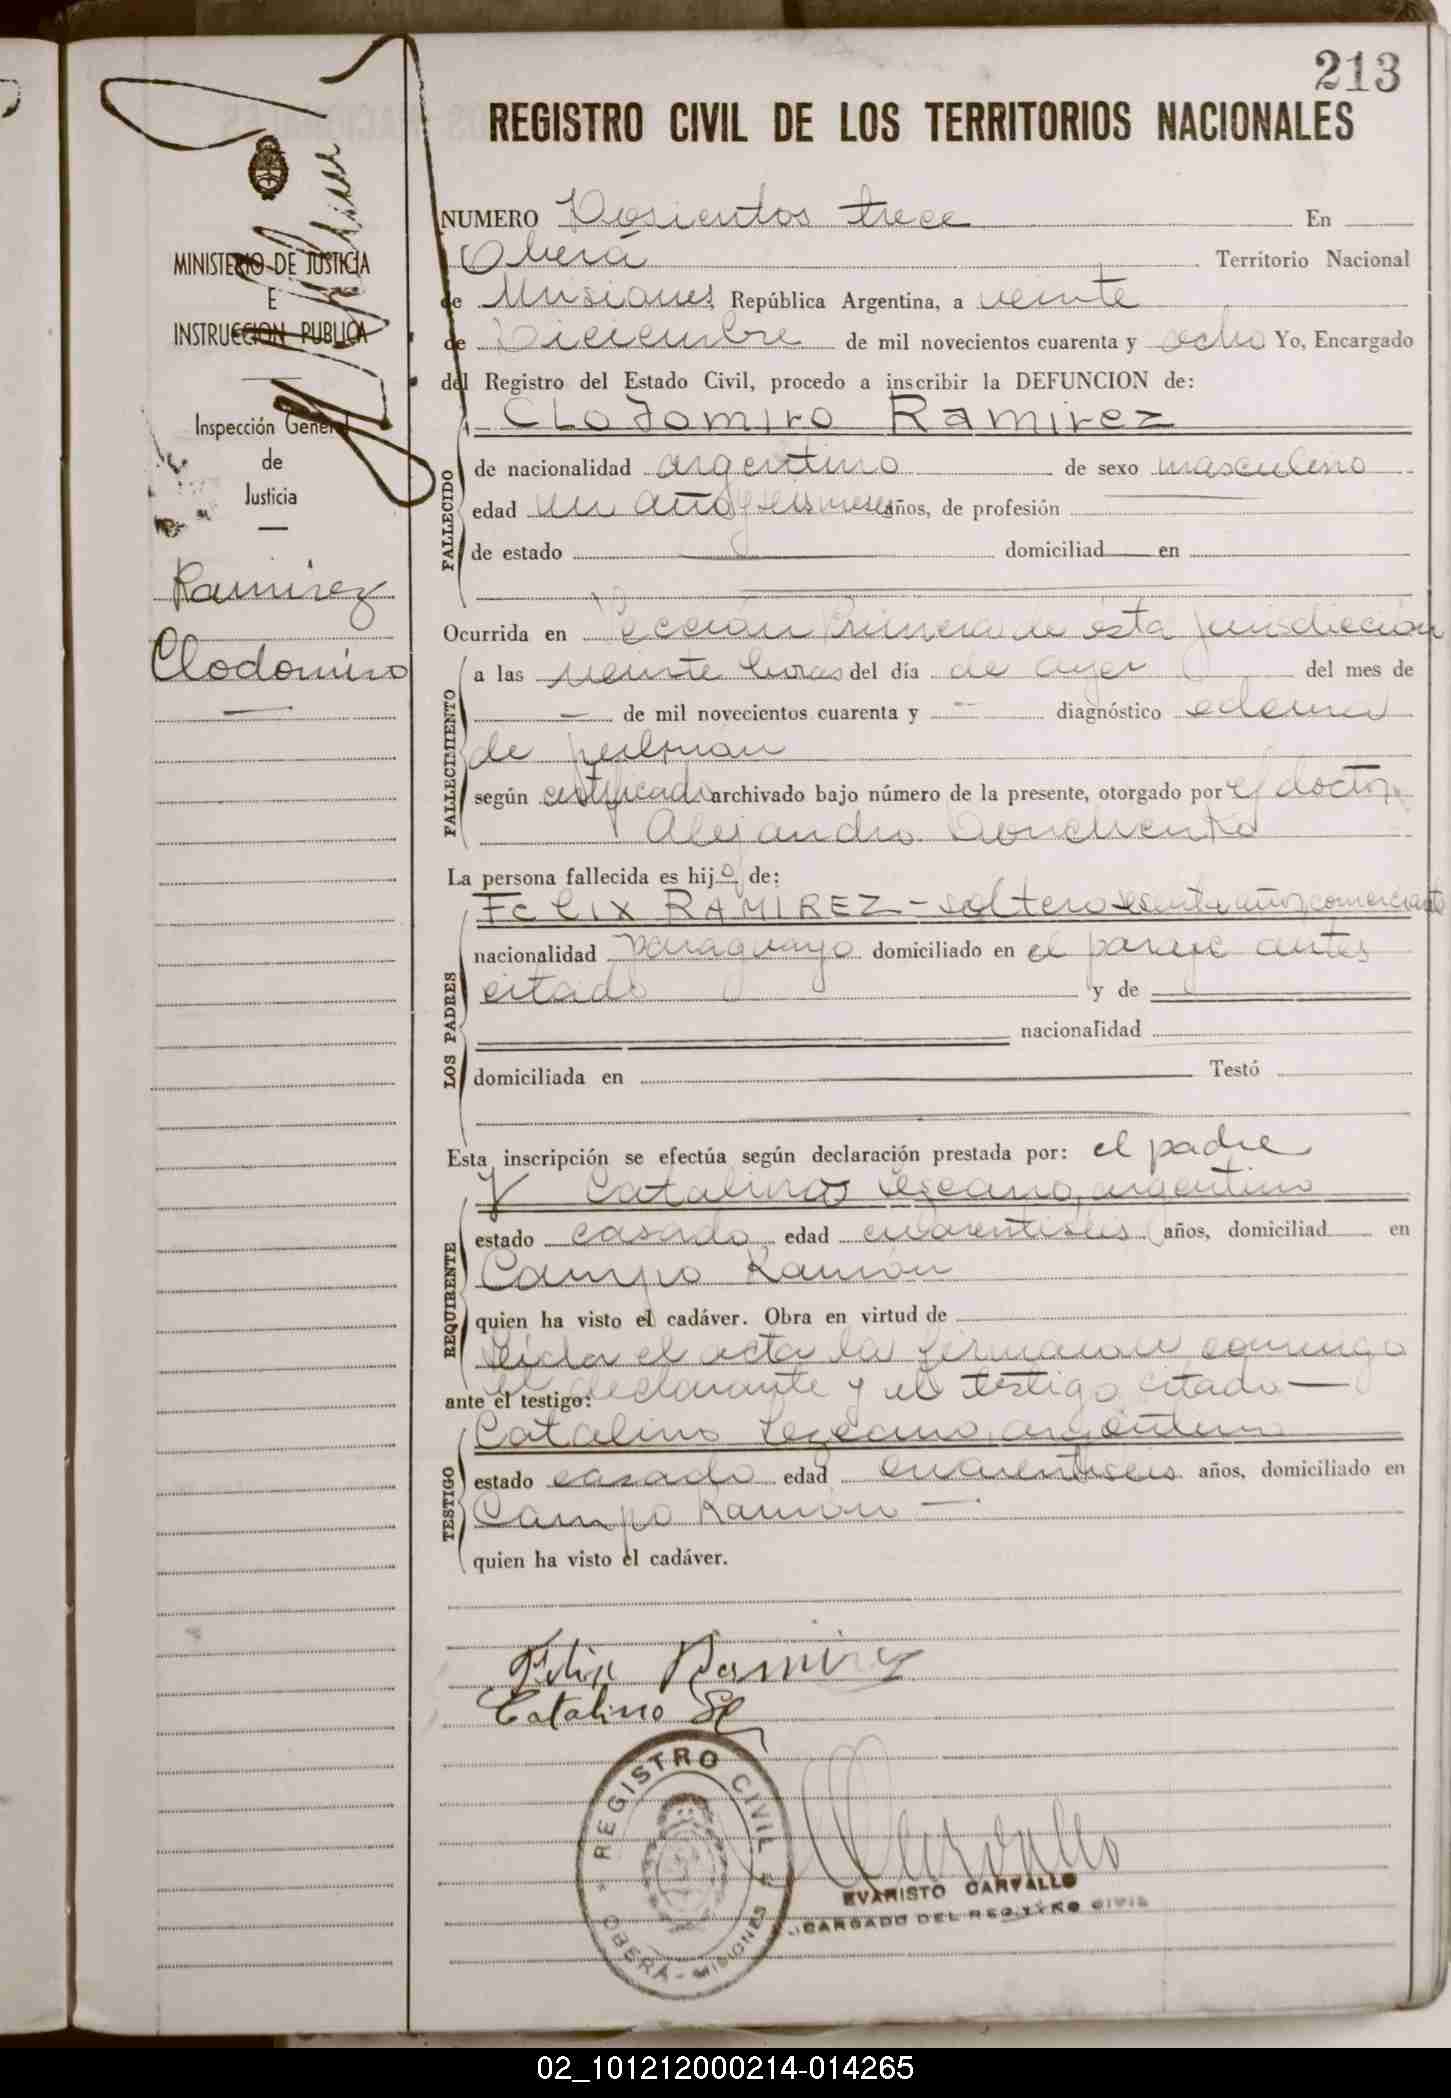 213
REGISTRO CIVIL DE LOS TERRITORIOS NACIONALES
MINISTERIO DE JUSTICIA
E
INSTRUCCION PUBLICA
Inspección General
de
Justicia
Ramirez
Clodomiro
NUMERO Dosientos trece En
Oberá Territorio Nacional
de Misiones, República Argentina, a veinte
de Diciembre de mil novecientos cuarenta y ocho Yo, Encargado
del Registro del Estado Civil, procedo a inscribir la DEFUNCION de:
CLODOMIRO RAMIREZ
FALLECIDO
de nacionalidad argentino de sexo masculino
edad un año y seis meses años, de profesión
de estado domiciliad en
Ocurrida en Sección Primera de ésta jurisdicción
FALLECIMIENTO
a las veinte horas del día de ayer del mes de
de mil novecientos cuarenta y diagnóstico edema
de pulmón
según certificado archivado bajo número de la presente, otorgado por el doctor
Alejandro
La persona fallecida es hijo de:
LOS PADRES
FELIX RAMIREZ - soltero sesenta años, comerciante
nacionalidad paraguayo domiciliado en el paraje antes
citado y de
nacionalidad
domiciliada en Testó
Esta inscripción se efectúa según declaración prestada por: el padre
REQUIRENTE
y Catalino Lezcano, argentino
estado casado edad cuarentiseis años, domiciliad en
Campo Ramón
quien ha visto el cadáver. Obra en virtud de
Leida el acta la firmaron conmigo
el declarante y el testigo citado —
ante el testigo:
TESTIGO
Catalino Lezcano, argentino
estado casado edad cuarentiseis años, domiciliado en
Campo Ramón —
quien ha visto el cadáver.
Felix Ramirez
Catalino
REGISTRO CIVIL
OBERÁ - MISIONES
Carvallo
EVARISTO CARVALLO
ENCARGADO DEL REGISTRO CIVIL
02_101212000214-014265